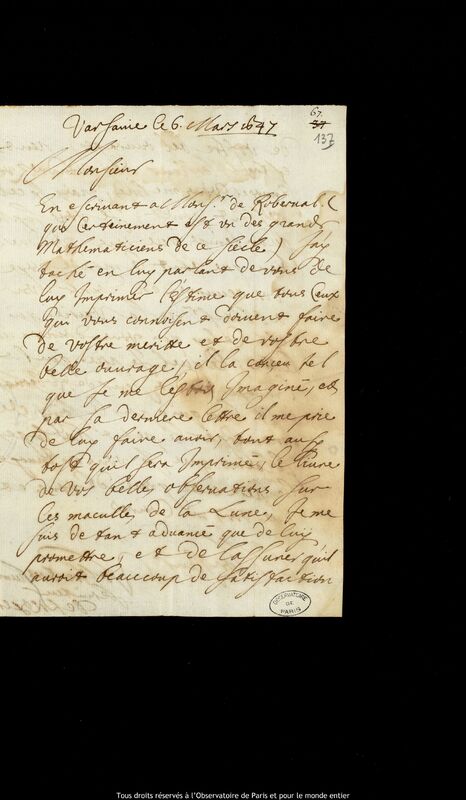 67.
37
137
Varsavie le 6. Mars 1647
Monsieur
En escriuant a Mons.r de Roberual (
qui Certainement est vn des grands
Mathematiciens de ce siecle) Jay
taché en luy parlant de vous de
luy Imprimer l'estime que tous Ceux
qui vous connoisent doiuent faire
de vostre meritte et de vostre
belle ouurage, il la conceu tel
que Je me l'estois Imaginé, et
par sa derniere lettre il me prie
de luy faire auoir, tout aussy
tost quil sera Imprimé, le liure
de vos belles obseruations sur
les maculles de la Lune, Je me
suis de tant aduancé que de luy
promettre, et de l'assurer quil
auroit beaucoup de satisfaction
OBSERVATOIRE
DE
PARIS
Tous droits réservés à l'Observatoire de Paris et pour le monde entier